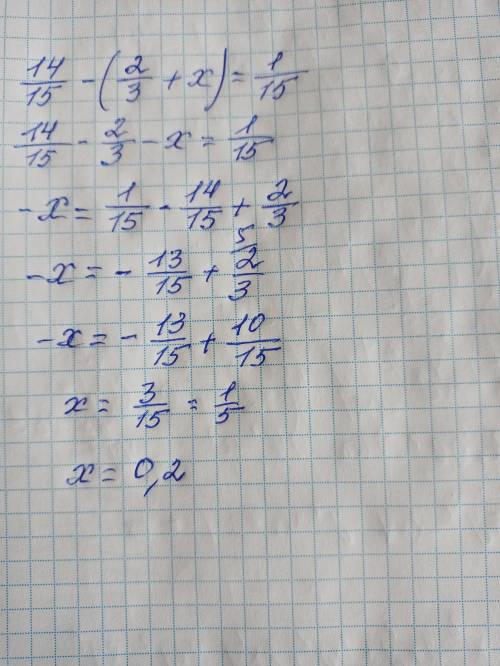 14/15 - (2/3 + x) = 1/15
14/15 - 2/3 - x = 1/15
-x = 1/15 - 14/15 + 2/3
-x = - 13/15 + 2/3 5
-x = - 13/15 + 10/15
x = 3/15 = 1/5
x = 0,2